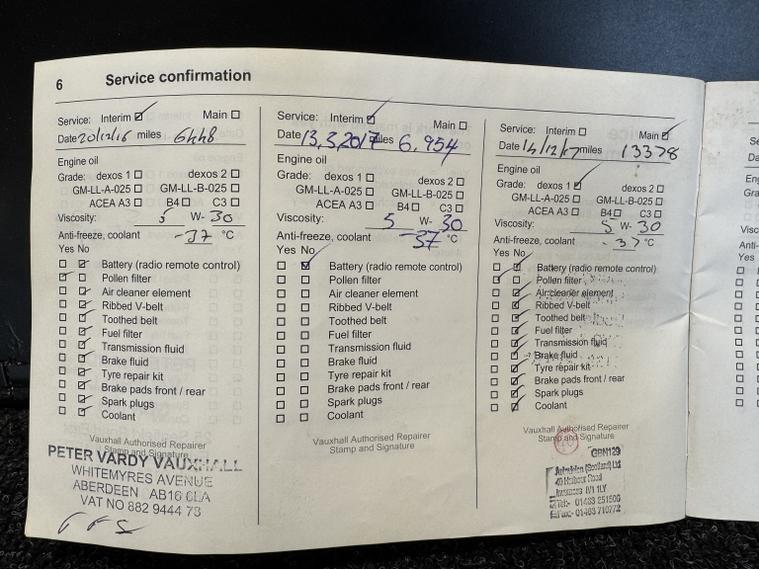 6 Service confirmation
Service: Interim ☑ Main ☐
Date 20/12/16 miles 6448
Engine oil
Grade: dexos 1 ☐ dexos 2 ☐
GM-LL-A-025 ☐ GM-LL-B-025 ☐
ACEA A3 ☐ B4 ☐ C3 ☐
Viscosity: 5 W- 30
Anti-freeze, coolant -37 °C
Yes No
Battery (radio remote control)
Pollen filter
Air cleaner element
Ribbed V-belt
Toothed belt
Fuel filter
Transmission fluid
Brake fluid
Tyre repair kit
Brake pads front / rear
Spark plugs
Coolant
Vauxhall Authorised Repairer
Stamp and Signature
PETER VARDY VAUXHALL
WHITEMYRES AVENUE
ABERDEEN AB16 6LA
VAT NO 882 9444 73
Service: Interim ☑ Main ☐
Date 13.3.2017 miles 6,954
Engine oil
Grade: dexos 1 ☐ dexos 2 ☐
GM-LL-A-025 ☐ GM-LL-B-025 ☐
ACEA A3 ☐ B4 ☐ C3 ☐
Viscosity: 5 W- 30
Anti-freeze, coolant -37 °C
Yes No
Battery (radio remote control)
Pollen filter
Air cleaner element
Ribbed V-belt
Toothed belt
Fuel filter
Transmission fluid
Brake fluid
Tyre repair kit
Brake pads front / rear
Spark plugs
Coolant
Vauxhall Authorised Repairer
Stamp and Signature
Service: Interim ☐ Main ☑
Date 14/12/17 miles 13378
Engine oil
Grade: dexos 1 ☑ dexos 2 ☐
GM-LL-A-025 ☐ GM-LL-B-025 ☐
ACEA A3 ☐ B4 ☐ C3 ☐
Viscosity: 5 W- 30
Anti-freeze, coolant -37 °C
Yes No
Battery (radio remote control)
Pollen filter
Air cleaner element
Ribbed V-belt
Toothed belt
Fuel filter
Transmission fluid
Brake fluid
Tyre repair kit
Brake pads front / rear
Spark plugs
Coolant
Vauxhall Authorised Repairer
Stamp and Signature
GBN129
(Scotland) Ltd
49 Harbour Road
Inverness IV1 1LY
Tel: 01463 251500
Fax: 01463 710772